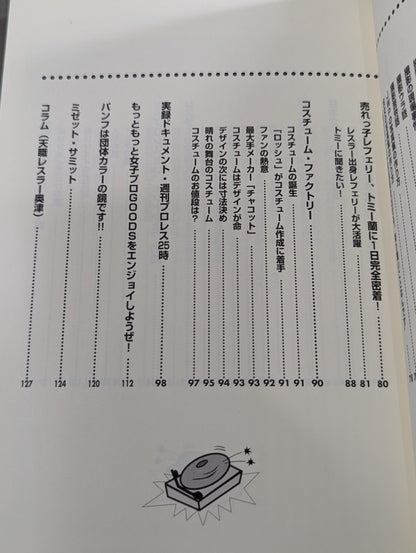 売れっ子レフェリー、トミー蘭に1日完全密着！ 80
レスラー出身レフェリーが大活躍 81
トミーに聞きたい！ 88
コスチューム・ファクトリー 90
コスチュームの誕生 91
「ロッシュ」がコスチューム作成に着手 91
ファンの熱意 92
最大手メーカー「チャコット」 93
コスチュームはデザインが命 93
デザインの次には寸法決め 94
晴れの舞台のコスチューム 95
コスチュームのお値段は？ 97
実録ドキュメント・週刊プロレス25時 98
もっともっと女子プロGOODSをエンジョイしようぜ！ 112
パンフは団体カラーの鏡です!! 120
ミゼット・サミット 124
コラム（天龍レスラー奥津） 127